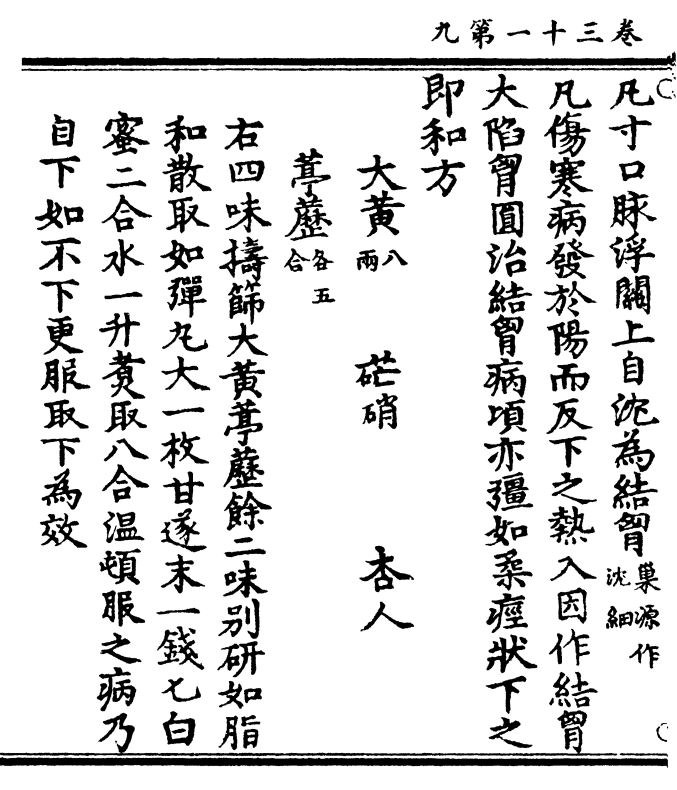 卷三十一第九
凡寸口脉浮關上自沈為結胷巢源作沈細
凡傷寒病發於陽而反下之熱入因作結胷
大陷胷圓治結胷病項亦彊如柔痙狀下之
即和方
大黄八兩 芒硝 杏人
葶藶各五合
右四味擣篩大黄葶藶餘二味别研如脂
和散取如彈丸大一枚甘遂末一錢匕白
蜜二合水一升煑取八合温頓服之病乃
自下如不下更服取下為效